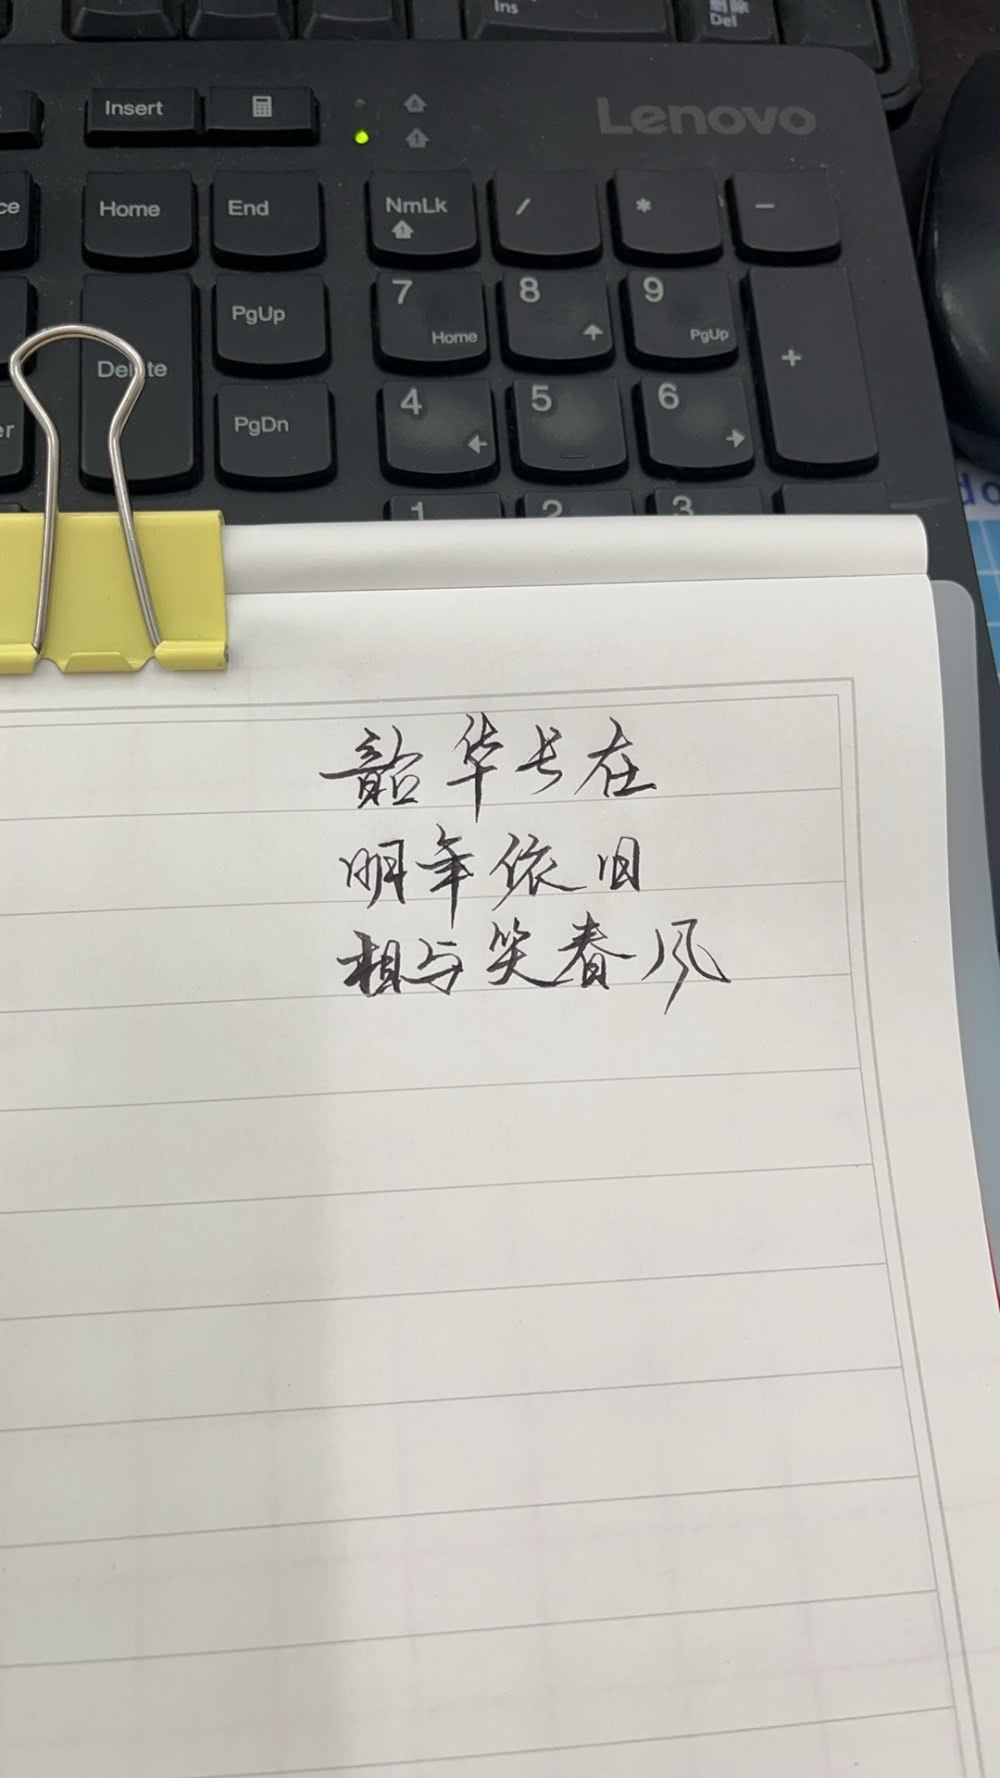 Ins
删除
Del
Insert
Lenovo
Home
End
NmLk
/
*
-
PgUp
7
Home
8
9
PgUp
+
Delete
PgDn
4
5
6
1
2
3
韶华长在
明年依旧
相与笑春风